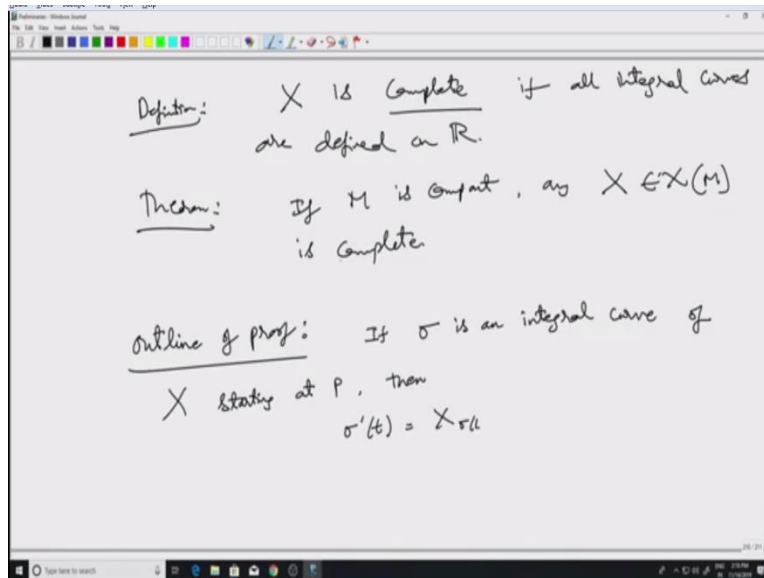 Preliminaries - Windows Journal
File Edit View Insert Actions Tools Help
Definition: X is Complete if all integral curves
are defined on ℝ.
Theorem: If M is compact, any X ∈ 𝒳(M)
is complete
outline of proof: If σ is an integral curve of
X starting at p, then
σ'(t) = X σ(t
Type here to search